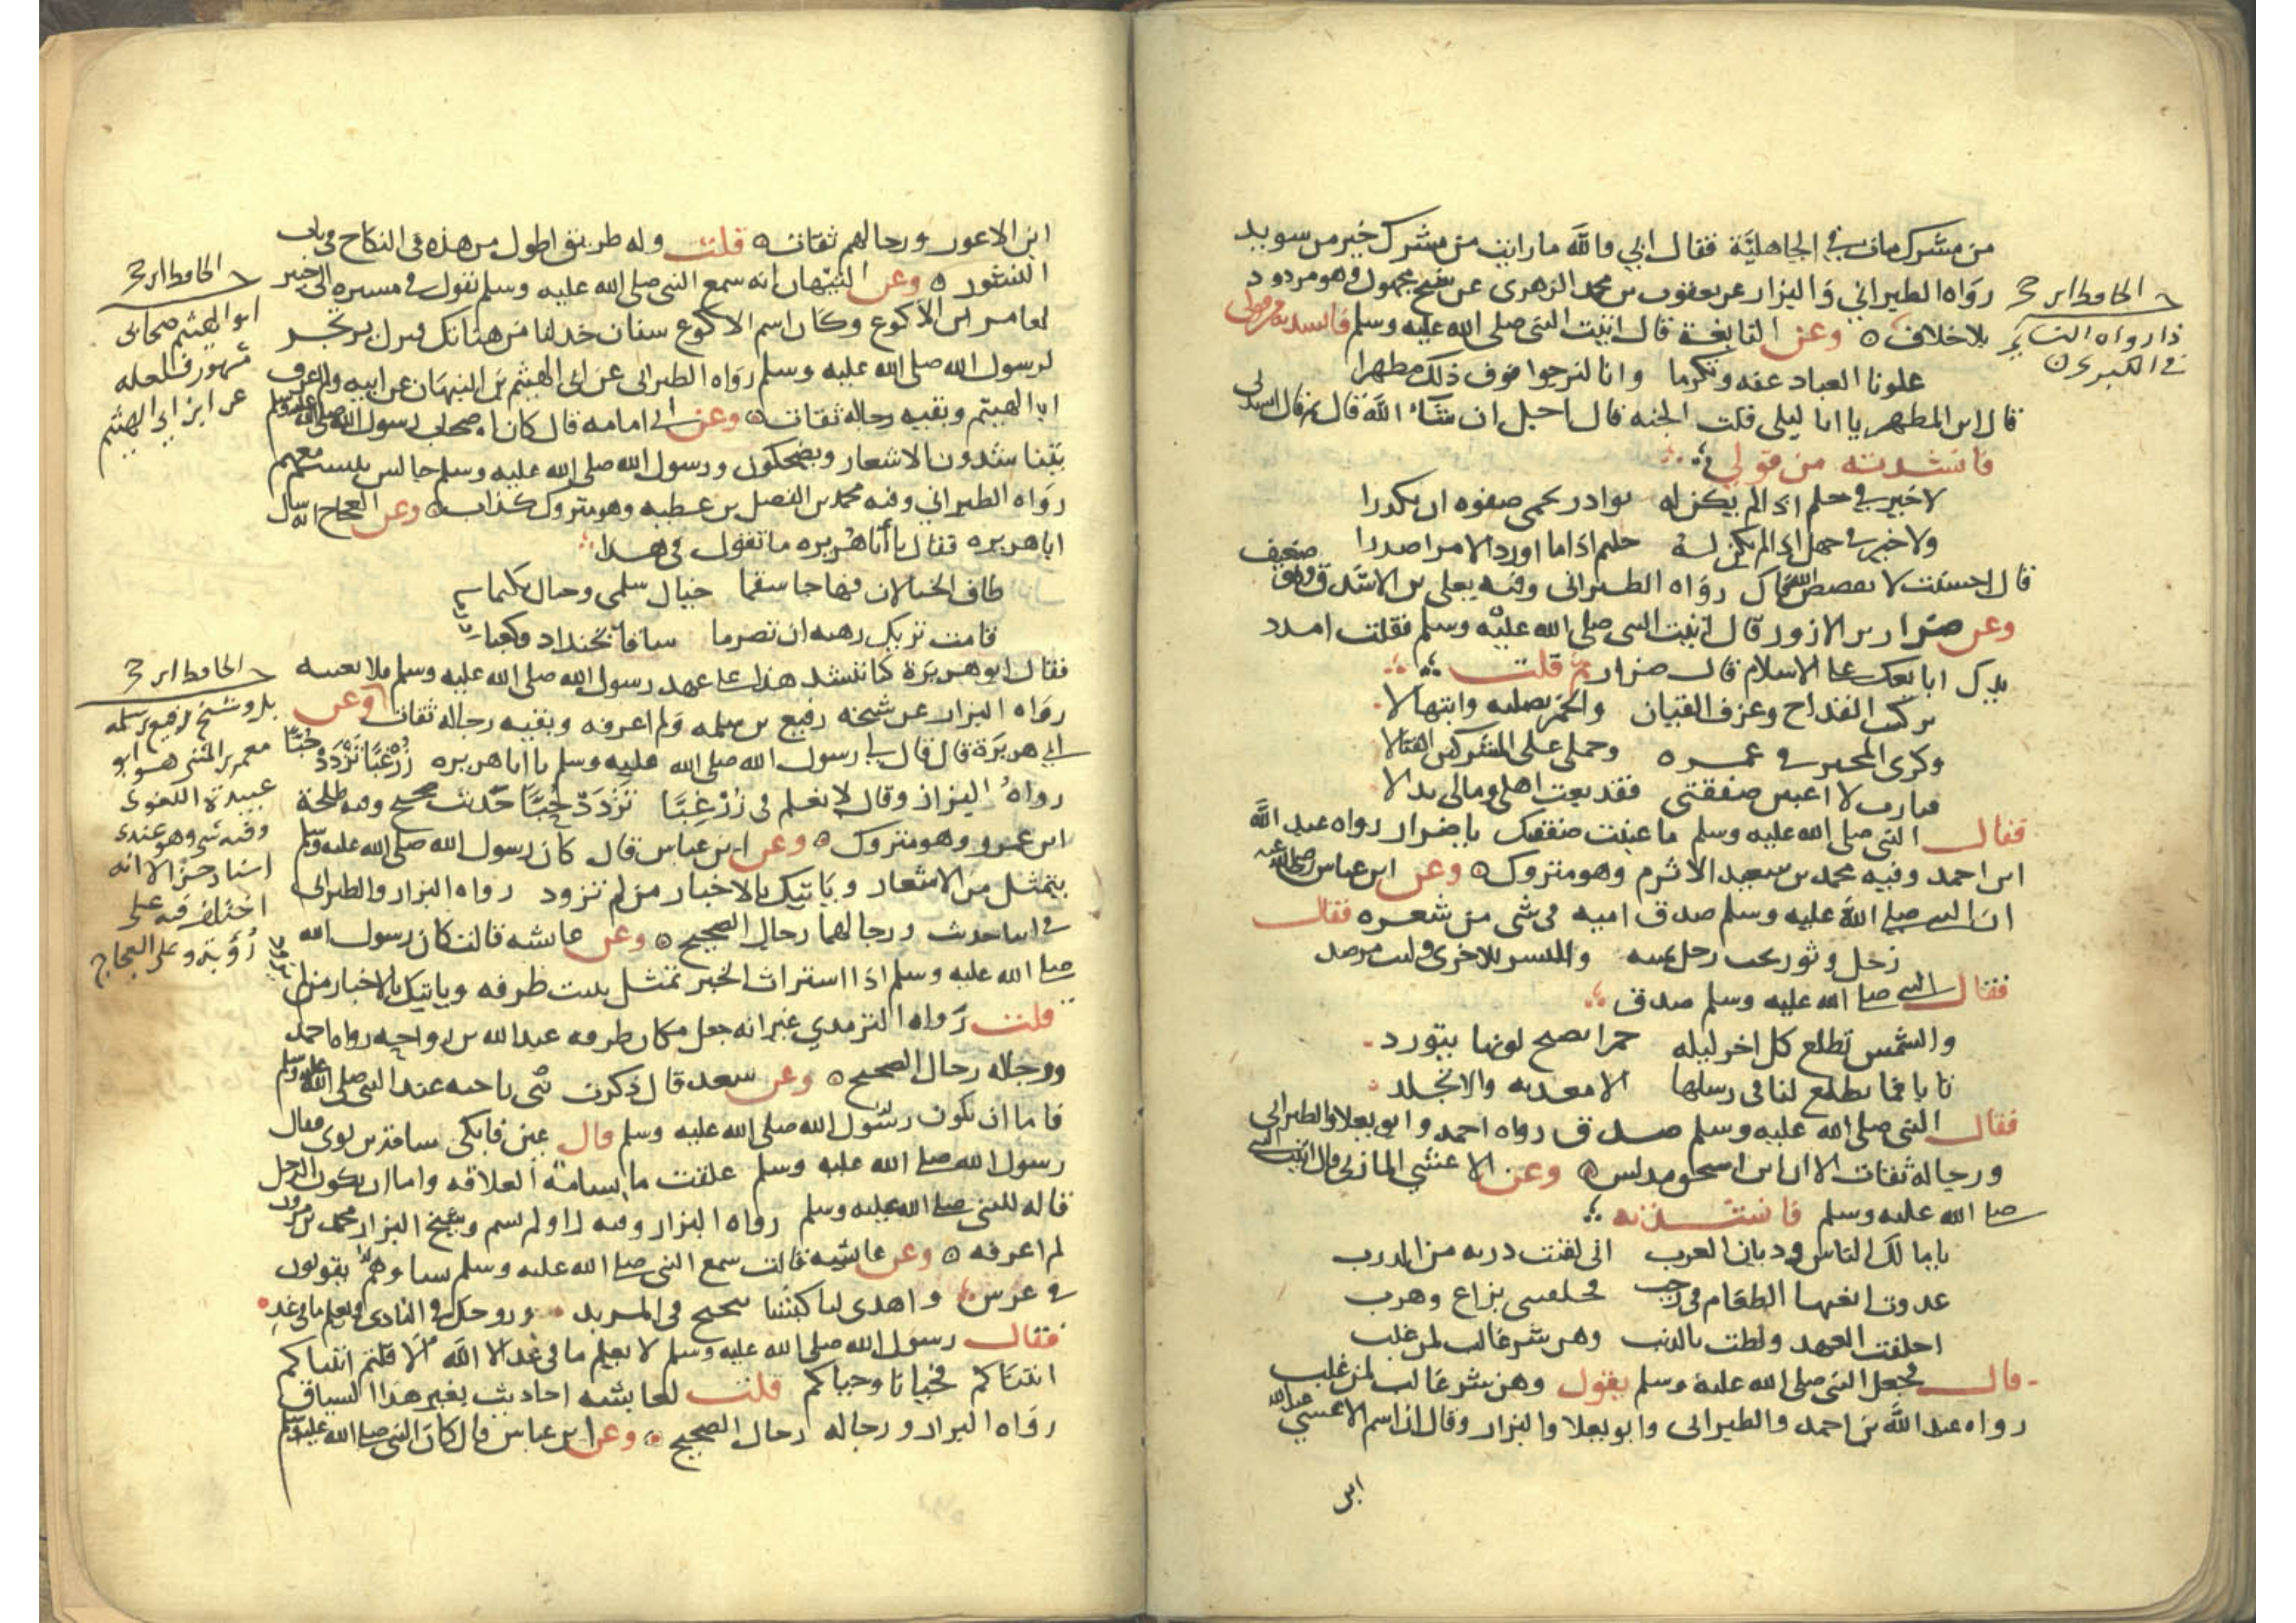 من مشرك مات في الجاهلية فقال ابي والله ما رايت من مشرك خير من سويد
رواه الطبراني والبزار عن يعقوب بن محمد الزهري عن شيخ مجهول وهو مردود
بلا خلاف وعن النابغة قال اتيت النبي صلى الله عليه وسلم فانشدته من قولي
علونا العباد عفه وتكرما وانا لنرجوا فوق ذلك مظهرا
قال اين المظهر يا ابا ليلى قلت الجنه قال اجل ان شاء الله قال ثم قال انشدني
فانشدته من قولي
لا خير في حلم اذا لم يكن له بوادر تحمي صفوه ان يكدرا
ولا خير في جهل اذا لم يكن له حليم اذا ما اورد الامر اصدرا
قال احسنت لا يفضض الله فاك رواه الطبراني وفيه يعلى بن الاشدق وهو ضعيف
وعن ضرار بن الازور قال اتيت النبي صلى الله عليه وسلم فقلت امدد
يدك ابايعك على الاسلام قال ضرار ثم قلت
تركت القداح وعزف القيان والخمر تصليه وابتهالا
وكري المحبر في غمره وحملي على المشركين القتالا
فيارب لا اغبنن صفقتي فقد بعت اهلي ومالي بدالا
فقال النبي صلى الله عليه وسلم ما غبنت صفقتك يا ضرار رواه عبد الله
ابن احمد وفيه محمد بن سعيد الاثرم وهو متروك وعن ابن عباس رضي الله عنه
ان النبي صلى الله عليه وسلم صدق اميه في شي من شعره فقال
زحل وثور تحت رجل يمينه والنسر للاخرى وليث مرصد
فقال النبي صلى الله عليه وسلم صدق
والشمس تطلع كل اخر ليله حمرا يصبح لونها يتورد
تابا فما تطلع لنا في رسلها الا معذبه والا تجلد
فقال النبي صلى الله عليه وسلم صدق رواه احمد وابو يعلا والطبراني
ورجاله ثقات الا ان ابن اسحق مدلس وعن الاعشي المازني قال اتيت النبي
صلى الله عليه وسلم فانشدته
يا مالك الناس وديان العرب اني لقيت دربه من الدرب
غدوت ابغيها الطعام في رجب فخلفتني بنزاع وهرب
اخلفت العهد ولطت بالذنب وهن شر غالب لمن غلب
قال فجعل النبي صلى الله عليه وسلم يقول وهن شر غالب لمن غلب
رواه عبد الله بن احمد والطبراني وابو يعلا والبزار وقال ان اسم الاعشي عبد الله
ابن
الحافظ ابن حجر
ذا رواه النسائي
في الكبرى
ابن الاعور ورجالهم ثقات قلت وله طريق اطول من هذه في النكاح في باب
النشوز وعن التيهان انه سمع النبي صلى الله عليه وسلم يقول في مسيره الى خيبر
لعامر ابن الاكوع وكان اسم الاكوع سنان خذ لنا من هناتك فنزل يرتجز
لرسول الله صلى الله عليه وسلم رواه الطبراني عن ابي الهيثم بن التيهان عن ابيه ولم اعرف
ابا الهيثم وبقيه رجاله ثقات وعن ابي امامه قال كان اصحاب رسول الله صلى الله عليه وسلم
يتناشدون الاشعار ويضحكون ورسول الله صلى الله عليه وسلم جالس يتبسم معهم
رواه الطبراني وفيه محمد بن الفضل بن عطيه وهو متروك كذاب وعن العجاج انه سال
ابا هريره فقال يا ابا هريره ما تقول في هذا
طاف الخيالان فهاجا سقما خيال سلمى وخيال تكتما
قامت تريك رهبه ان تصرما ساقا بخنداه وكعبا
فقال ابو هريرة كنا ننشد هذا على عهد رسول الله صلى الله عليه وسلم فلا يعيبه
رواه البزار عن شيخه رفيع بن سلمه ولم اعرفه وبقيه رجاله ثقات وعن
ابي هريرة قال قال لي رسول الله صلى الله عليه وسلم يا ابا هريره زر غبا تزدد حبا
رواه البزار وقال لا يعلم في زر غبا تزدد حبا حديث صحيح وفيه طلحة
ابن عمرو وهو متروك وعن ابن عباس قال كان رسول الله صلى الله عليه وسلم
يتمثل من الاشعار وياتيك بالاخبار من لم تزود رواه البزار والطبراني
في اثنا حديث ورجالهما رجال الصحيح وعن عائشه قالت كان رسول الله
صلى الله عليه وسلم اذا استراث الخبر تمثل ببيت طرفه وياتيك بالاخبار من لم
قلت رواه الترمذي غير انه جعل مكان طرفه عبد الله بن رواحه رواه احمد
ورجاله رجال الصحيح وعن سعد قال ذكرت شي ناحيه عند النبي صلى الله عليه وسلم
فاما ان يكون رسول الله صلى الله عليه وسلم قال عين فابكي سامة بن لوي فقال
رسول الله صلى الله عليه وسلم علقت ما بسامة العلاقه واما ان يكون الرجل
قاله للنبي صلى الله عليه وسلم رواه البزار وفيه راو لم يسم وشيخ البزار محمد بن مرزوق
لم اعرفه وعن عائشه قالت سمع النبي صلى الله عليه وسلم نساء وهم يقولون
في عرس واهدى لنا كبشا تنحنح في المربد وزوجك في النادي ويعلم ما في غد
فقال رسول الله صلى الله عليه وسلم لا يعلم ما في غد الا الله الا قلتم اتيناكم
اتيناكم فحيانا وحياكم قلت لعائشه احاديث بغير هذا السياق
رواه البزار ورجاله رجال الصحيح وعن ابن عباس قال كان النبي صلى الله عليه وسلم
الحافظ ابن حجر
ابو الهيثم صحابي
مشهور فلعله
عن ابن ابي الهيثم
الحافظ ابن حجر
بل وشيخ رفيع بن سلمه
معمر بن المثنى هو ابو
عبيدة اللغوي
وفيه شي وهو عندي
اسناد حسن الا انه
اختلف فيه على
رؤبة وعلى العجاج